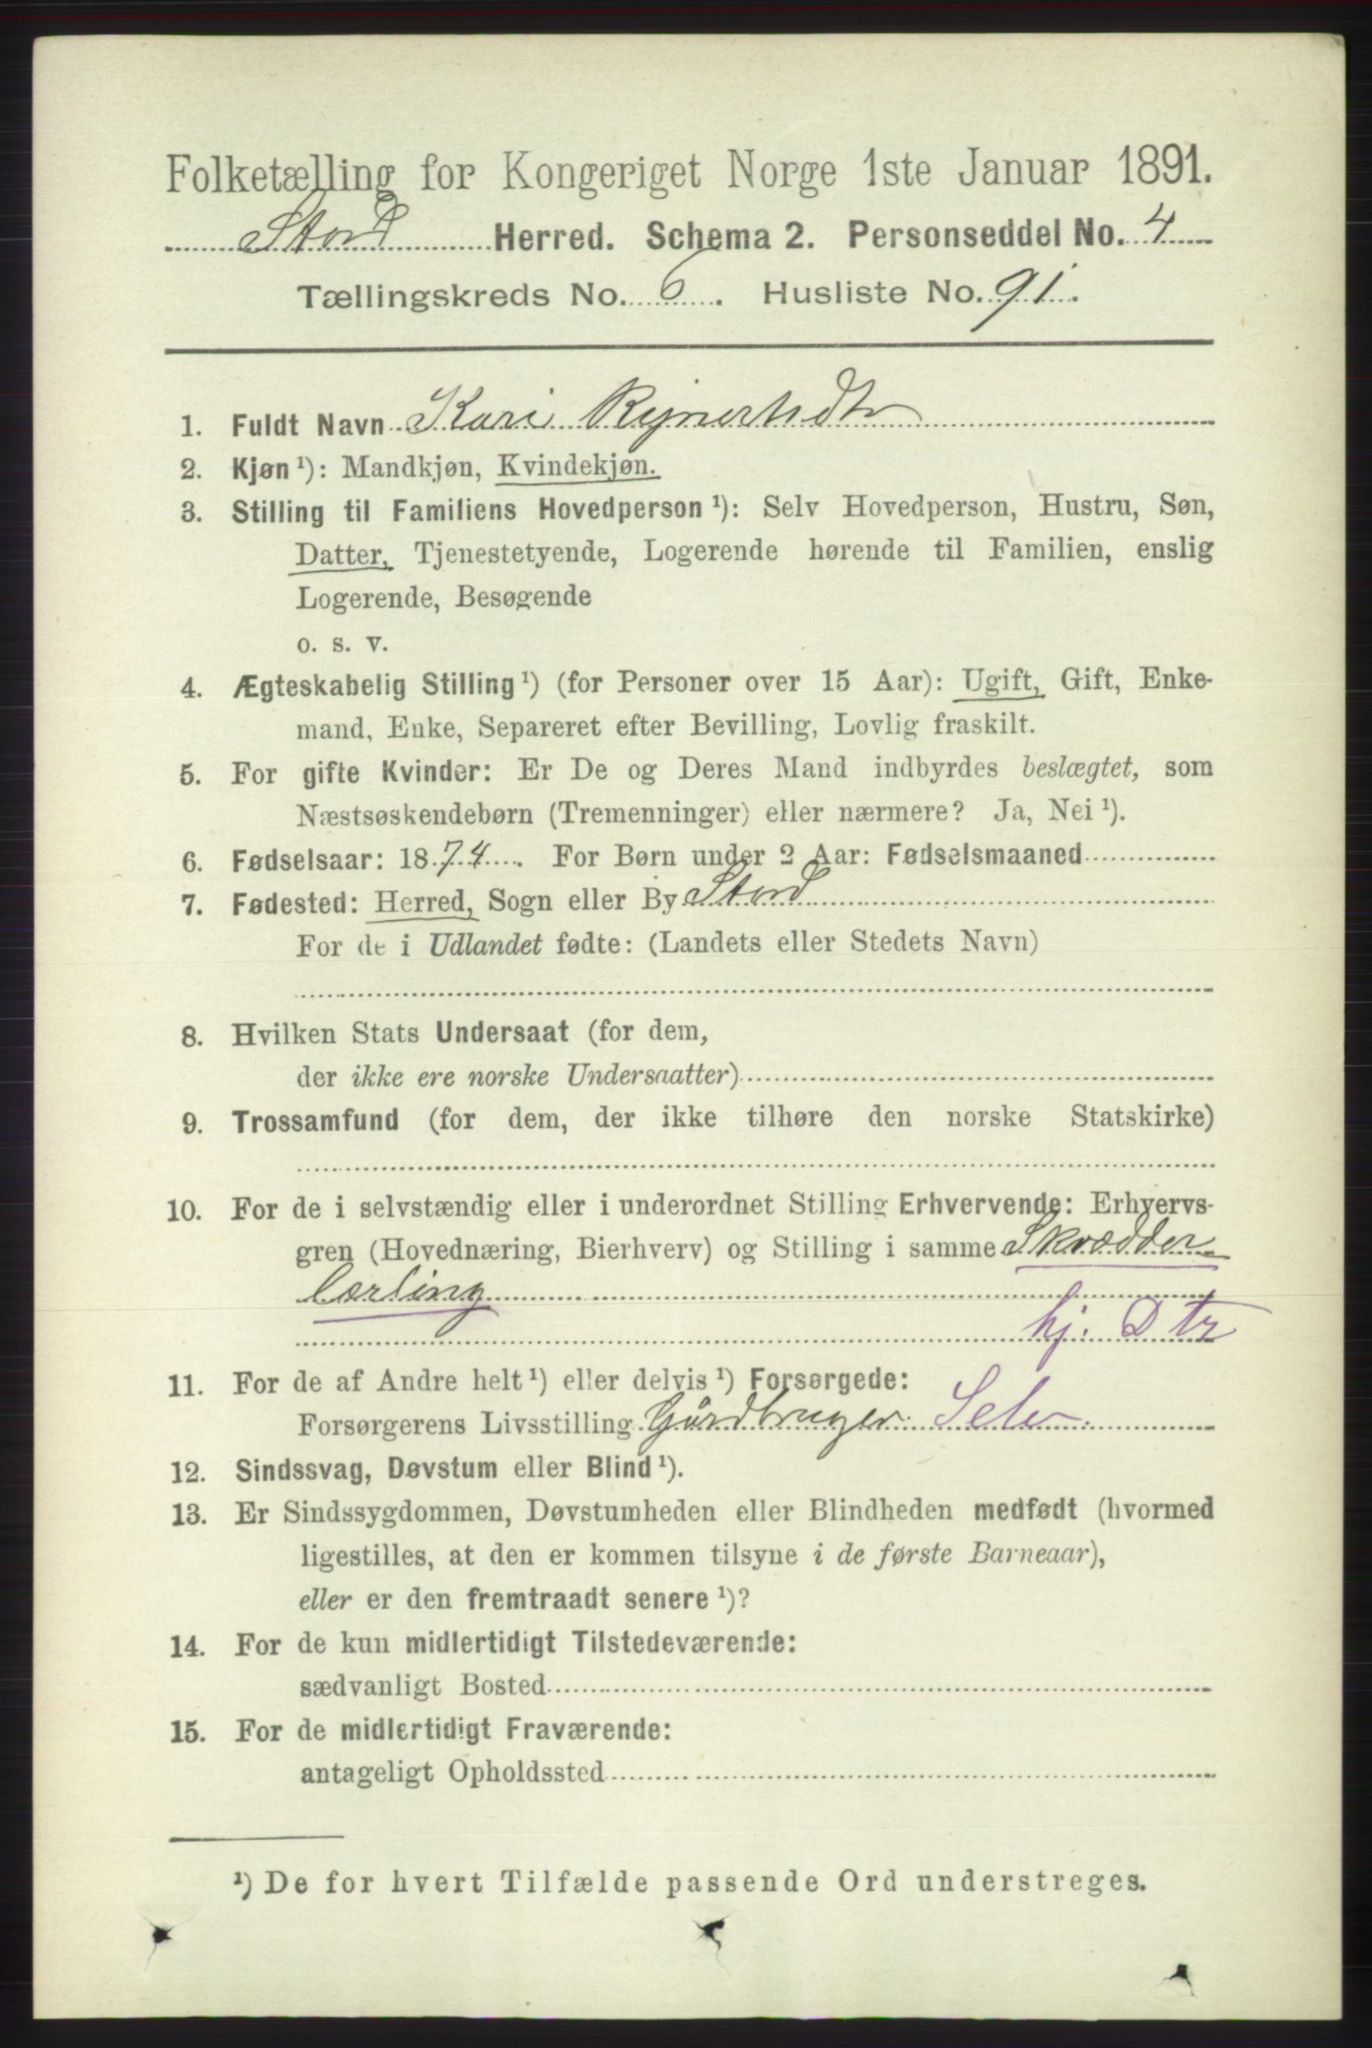 Folketælling for Kongeriget Norge 1ste Januar 1891.
Stord Herred. Schema 2. Personseddel No. 4
Tællingskreds No. 6. Husliste No. 91.
1. Fuldt Navn Kari Rejnertsdtr
2. Kjøn ¹): Mandkjøn, Kvindekjøn.
3. Stilling til Familiens Hovedperson ¹): Selv Hovedperson, Hustru, Søn,
Datter, Tjenestetyende, Logerende hørende til Familien, enslig
Logerende, Besøgende
o. s. v.
4. Ægteskabelig Stilling ¹) (for Personer over 15 Aar): Ugift, Gift, Enke-
mand, Enke, Separeret efter Bevilling, Lovlig fraskilt.
5. For gifte Kvinder: Er De og Deres Mand indbyrdes beslægtet, som
Næstsøskendebørn (Tremenninger) eller nærmere? Ja, Nei ¹).
6. Fødselsaar: 1874. For Børn under 2 Aar: Fødselsmaaned
7. Fødested: Herred, Sogn eller By Stord
For de i Udlandet fødte: (Landets eller Stedets Navn)
8. Hvilken Stats Undersaat (for dem,
der ikke ere norske Undersaatter)
9. Trossamfund (for dem, der ikke tilhøre den norske Statskirke)
10. For de i selvstændig eller i underordnet Stilling Erhvervende: Erhvervs-
gren (Hovednæring, Bierhverv) og Stilling i samme Skrædder
lærling
hj. Dtr
11. For de af Andre helt ¹) eller delvis ¹) Forsørgede:
Forsørgerens Livsstilling Gårdbruger. Selv
12. Sindssvag, Døvstum eller Blind ¹).
13. Er Sindssygdommen, Døvstumheden eller Blindheden medfødt (hvormed
ligestilles, at den er kommen tilsyne i de første Barneaar),
eller er den fremtraadt senere ¹)?
14. For de kun midlertidigt Tilstedeværende:
sædvanligt Bosted
15. For de midlertidigt Fraværende:
antageligt Opholdssted
¹) De for hvert Tilfælde passende Ord understreges.